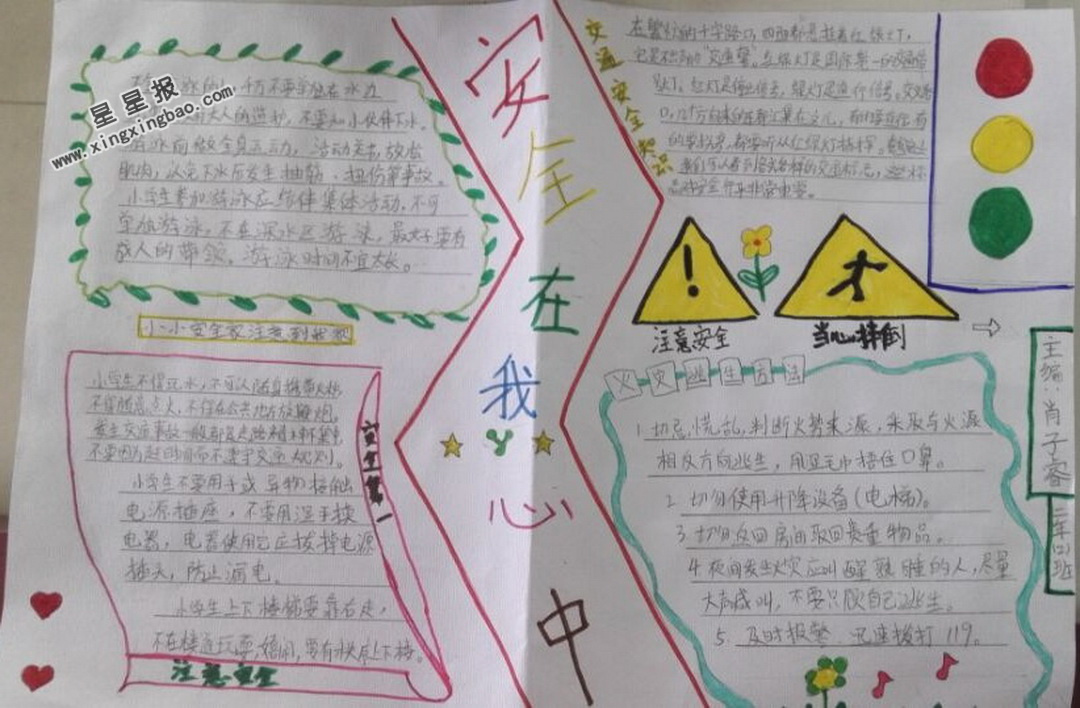 星星报
www.xingxingbao.com
冰
千万不要单独在水边
大人的监护，不要和小伙伴下水。
泳前做全身运动，活动关节，放松
肌肉，以免下水后发生抽筋、扭伤等事故。
小学生参加游泳应结伴集体活动，不可
单独游泳，不在深水区游泳，最好要有
成人的带领。游泳时间不宜太长。
小小安全家注意到我家
小学生不得玩火，不可以随身携带火
不得随意点火，不得在公共地方放鞭炮。
不要因为赶时间而不遵守交通规则。
小学生不要用手或异物接触
电源插座，不要用湿手换
电器，电器使用完应拔掉电源
插头，防止漏电。
小学生上下楼梯要靠右走，
不在楼道玩耍、嬉闹，要有秩序上下楼。
安全第一
注意安全
安全在我心中
交通安全知识
在繁忙的十字路口，四面都悬挂着红绿灯，
它是不出声的“交通警”。红绿灯是国际统一的交通信
号灯。红灯是停止信号，绿灯是通行信号。交叉路
口，几个方向来的车都汇集在这儿，有的要直行，有
的要拐弯，都要听从红绿灯指挥。
注意安全
当心摔倒
火灾逃生方法
1.切忌慌乱，判断火势来源，采取与火源
相反方向逃生，用湿毛巾捂住口鼻。
2.切勿使用升降设备(电梯)。
3.切勿返回房间取回贵重物品。
4.夜间发生火灾应叫醒熟睡的人，尽量
大声喊叫，不要只顾自己逃生。
5.及时报警，迅速拨打119。
主编：肖子睿
二年(2)班